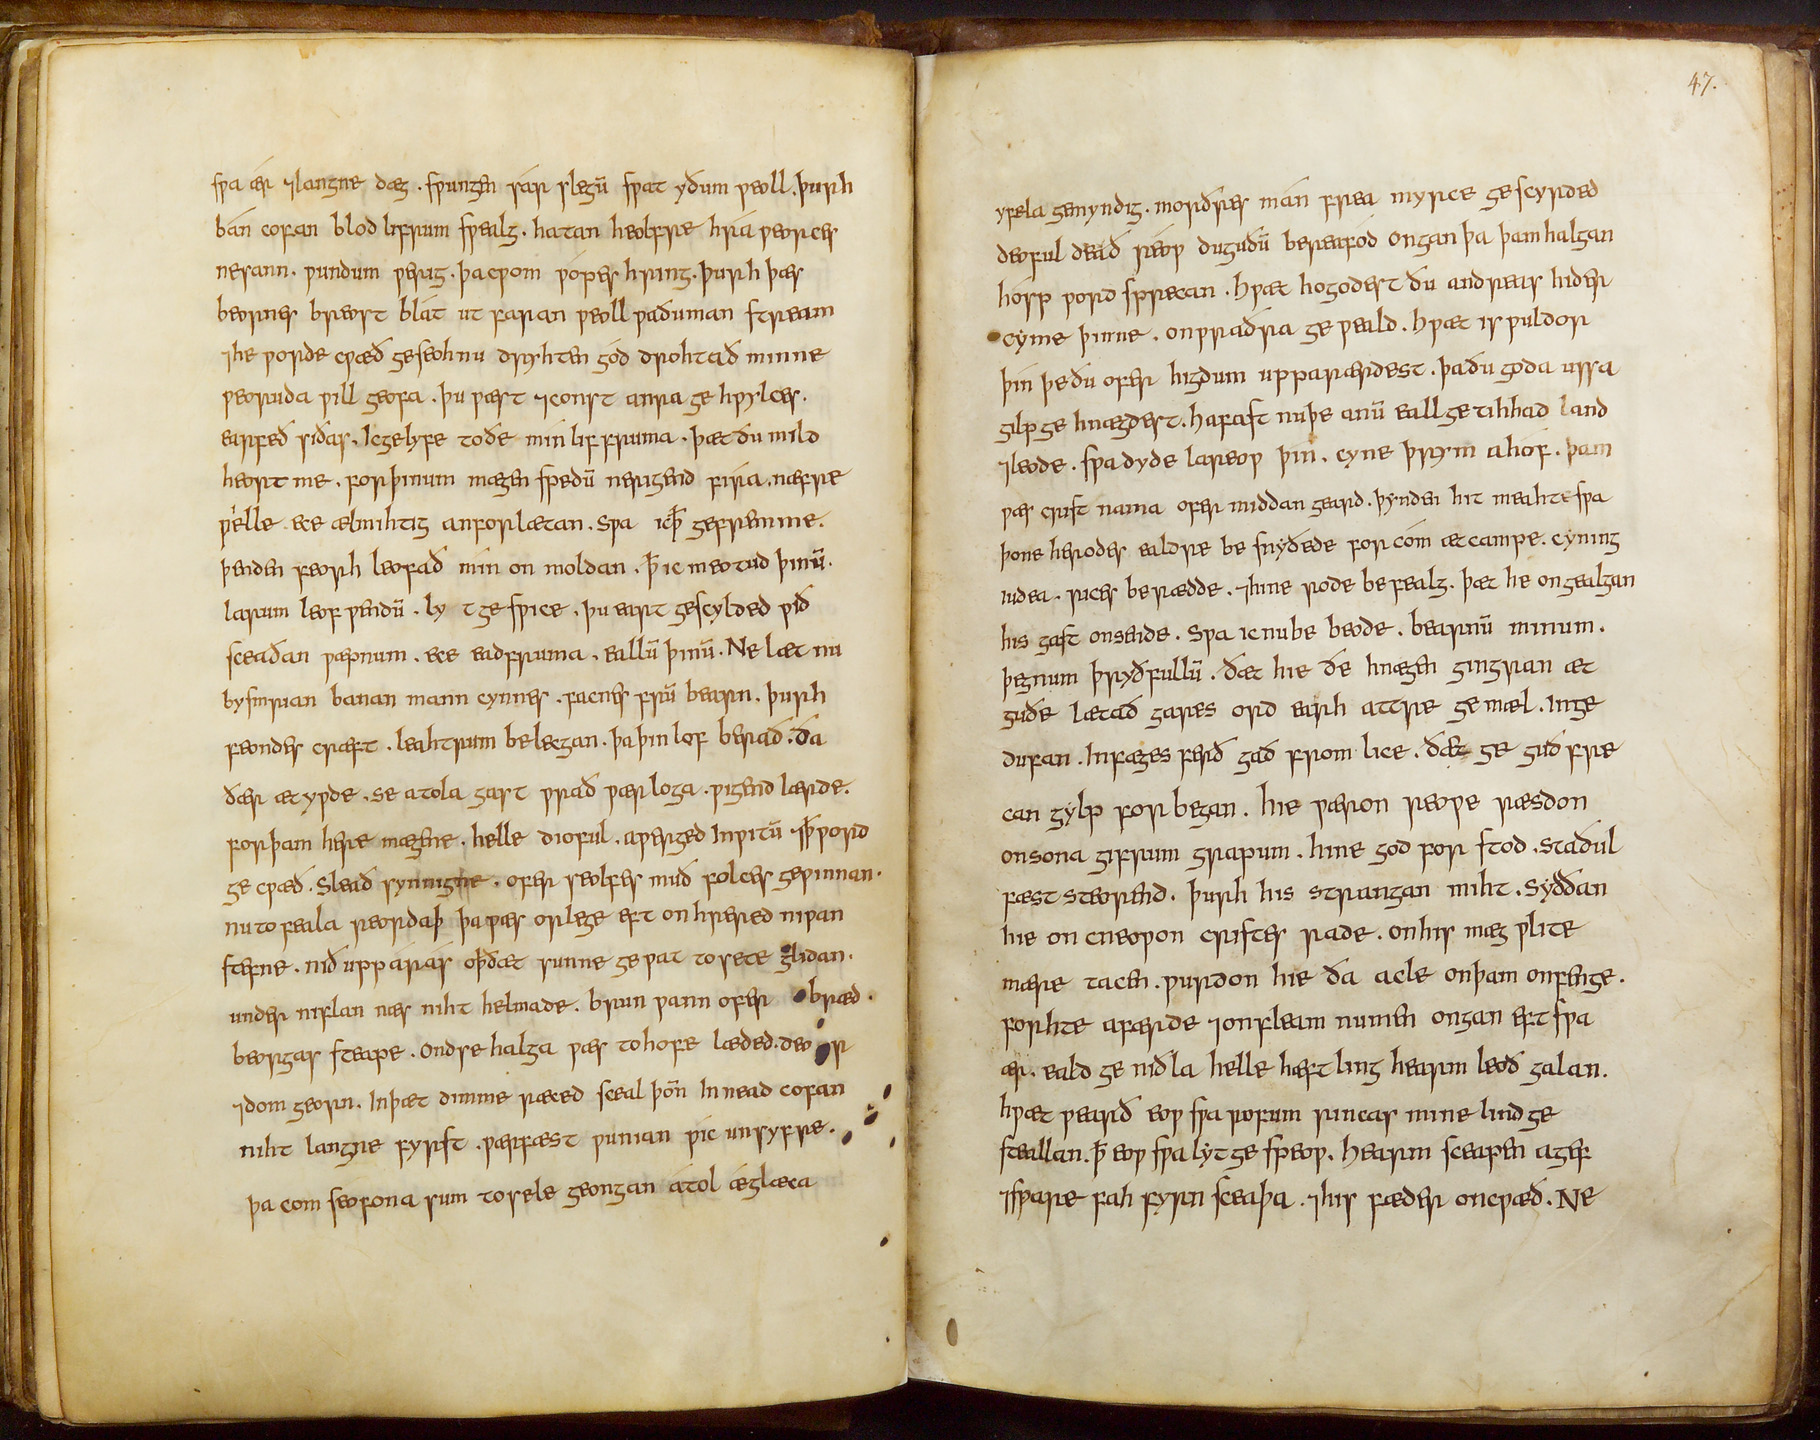 sƿa ær ⁊langne dæg . sƿungen sár slegū sƿat yðum ƿeoll . þurh
bán cofan blod lifrum sƿealg . hatan heolfre hrá ƿeorces
nesann . ƿundum ƿerig . þacƿom ƿópes hring . þurh þæs
beornes breost blát ut faran ƿeoll ƿaðuman stream
⁊he ƿorde cƿæð geseoh nu dryhten gód drohtað minne
ƿeoruda ƿill geofa . þu ƿast ⁊const anra ge hƿylces .
earfeð siðas . Ic gelyfe toðe min liffruma . þæt ðu mild
heort me . forþinum mægen spedū nerigend fira . næfre
ƿelle ece ælmihtig anforlætan . Sƿa ic þ̄ gefremme .
þenden feorh leofað min on moldan . þ̄ ic meotud þinū .
larum leof ƿendū . ly t ge sƿice . þu eart gescylded ƿið
sceaðan ƿæpnum . ece eadfruma . eallū þinū . Ne læt nu
bysmrian banan mann cynnes . facnes frū bearn . þurh
feondes cræft . leahtrum belecgan . þa þin lof berað . ða
ðær æt yƿde . se atola gast ƿrað ƿærloga . ƿigend lærde .
for þam here mægene . helle dioful . aƿerged Inƿitū ⁊þ̄ ƿord
ge cƿæð . Sleað synnigne . ofer seolfes muð folces geƿinnan .
nu to feala reordaþ þa ƿæs orlege eft onhrered niƿan
stefne . nið upp árás oþðæt sunne ge ƿat to sete glidan .
under niflan næs niht helmade . brun ƿann ofer bræd .
beorgas steape . Ond se halga ƿæs to hofe læded . deor
⁊dom georn . In þæt dimme ræced sceal þoñ In nead cofan
niht langne fyrst . ƿærfæst ƿunian ƿic unsyfre .
þa com seofona sum to sele geongan átol ǽglæca
47.
yfela gemyndig . morðres mán frea myrce gescyrded
deoful deað réoƿ duguðū bereafod Ongan þa þam halgan
hosp ƿord sprecan . Hƿæt hogodest ðu andreas hider
cyme þinne . on ƿraðra ge ƿeald . Hƿæt is ƿuldor
þin þe ðu ofer higdum upparærdest . þa ðu goda ussa
gilp ge hnægdest . Hafast nu þe anū eall ge tihhad land
⁊leode . sƿa dyde lareoƿ þin . cyne þrym ahóf . þam
ƿæs crist nama ofer middan geard . þynden hit meahte sƿa
þone herodes ealdre be snyðede for cóm æt campe . cyning
iudea . rices berædde . ⁊hine rode befealg . þæt he on gealgan
his gast onsende . Sƿa ic nu be beode . bearnū minum .
þegnum þryðfullū . ðæt hie ðe hnægen gingran æt
guðe lætað gares ord earh attre ge mæl . In ge
dufan . In fæges ferð gað from lice . ðæt ge guð fre
can gylp for began . hie ƿæron reoƿe ræsdon
onsona gifrum grapum . hine god for stod . staðul
fæst steorend . þurh his strangan miht . Syððan
hie on cneoƿon cristes rade . onhis mæg ƿlite
mære tacen . ƿurdon hie ða acle on þam onfenge .
forhte afærde ⁊onfleam numen ongan eft sƿa
ær . eald ge niðla helle hæftling hearm leoð galan .
hƿæt ƿearð eoƿ sƿa rofum rincas mine lind ge
steallan . þ̄ eoƿ sƿa lyt ge speoƿ . Hearm sceapen agef
⁊sƿare fah fyrn sceaþa . ⁊his fæder oncƿæð . Ne